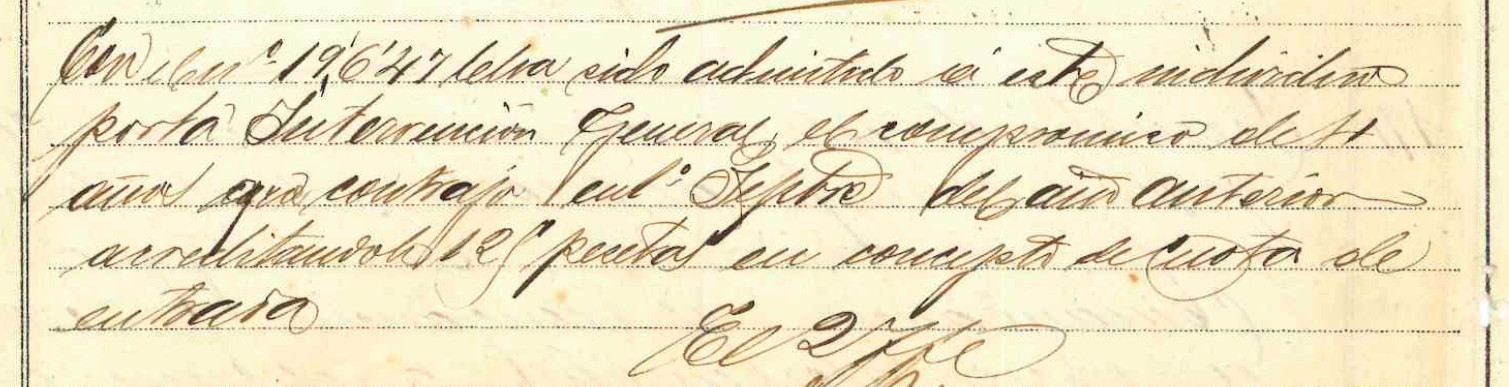 Con el nº 19,647 le ha sido admitido á este individuo
por la Intervención General, el compromiso de 4
años que contrajo en 1º Septbre del año anterior
acreditandole 125 pesetas en concepto de cuota de
entrada
El 2º Jefe